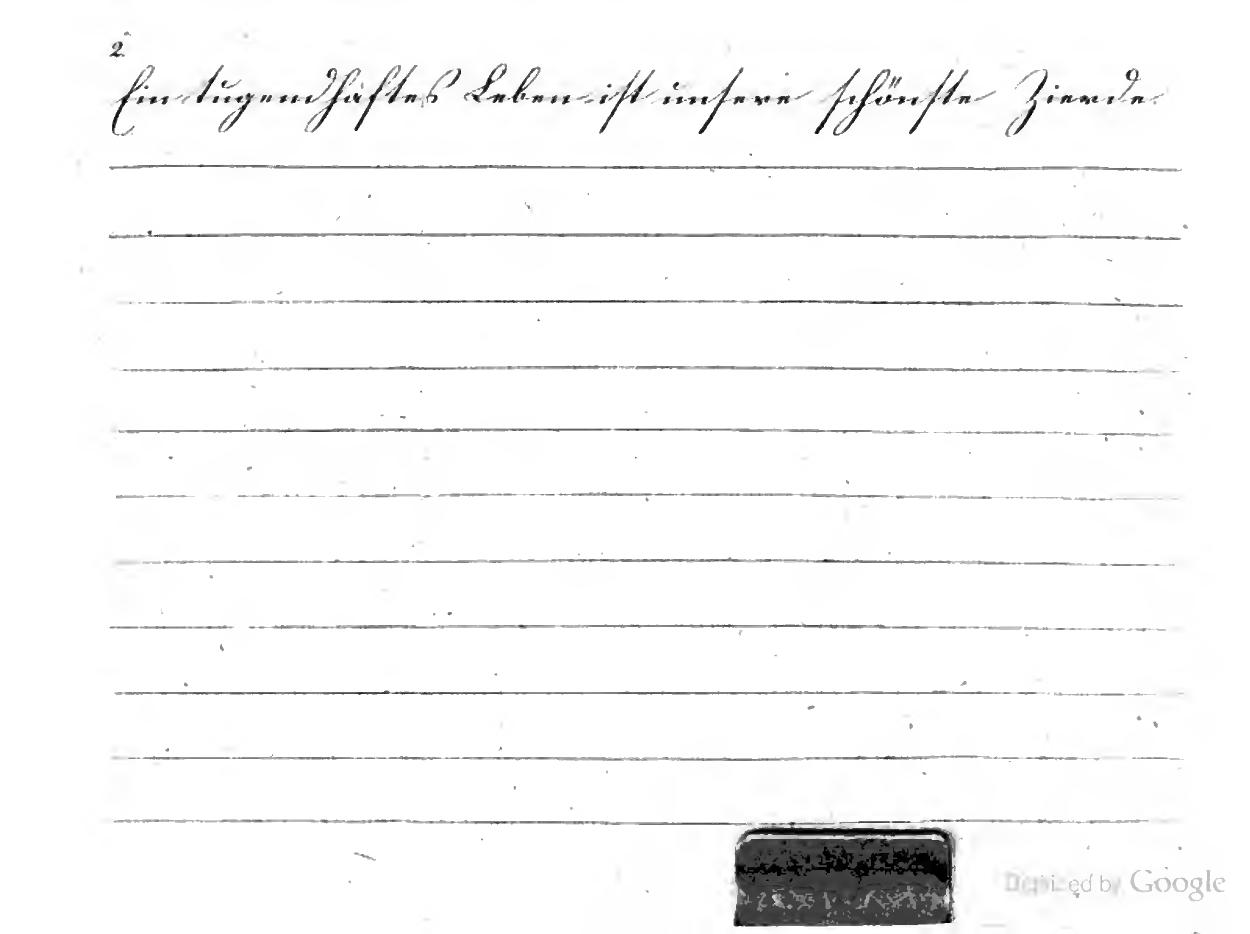 2.
Ein tugendhaftes Leben ist unsere schönste Zierde.
Digitized by Google